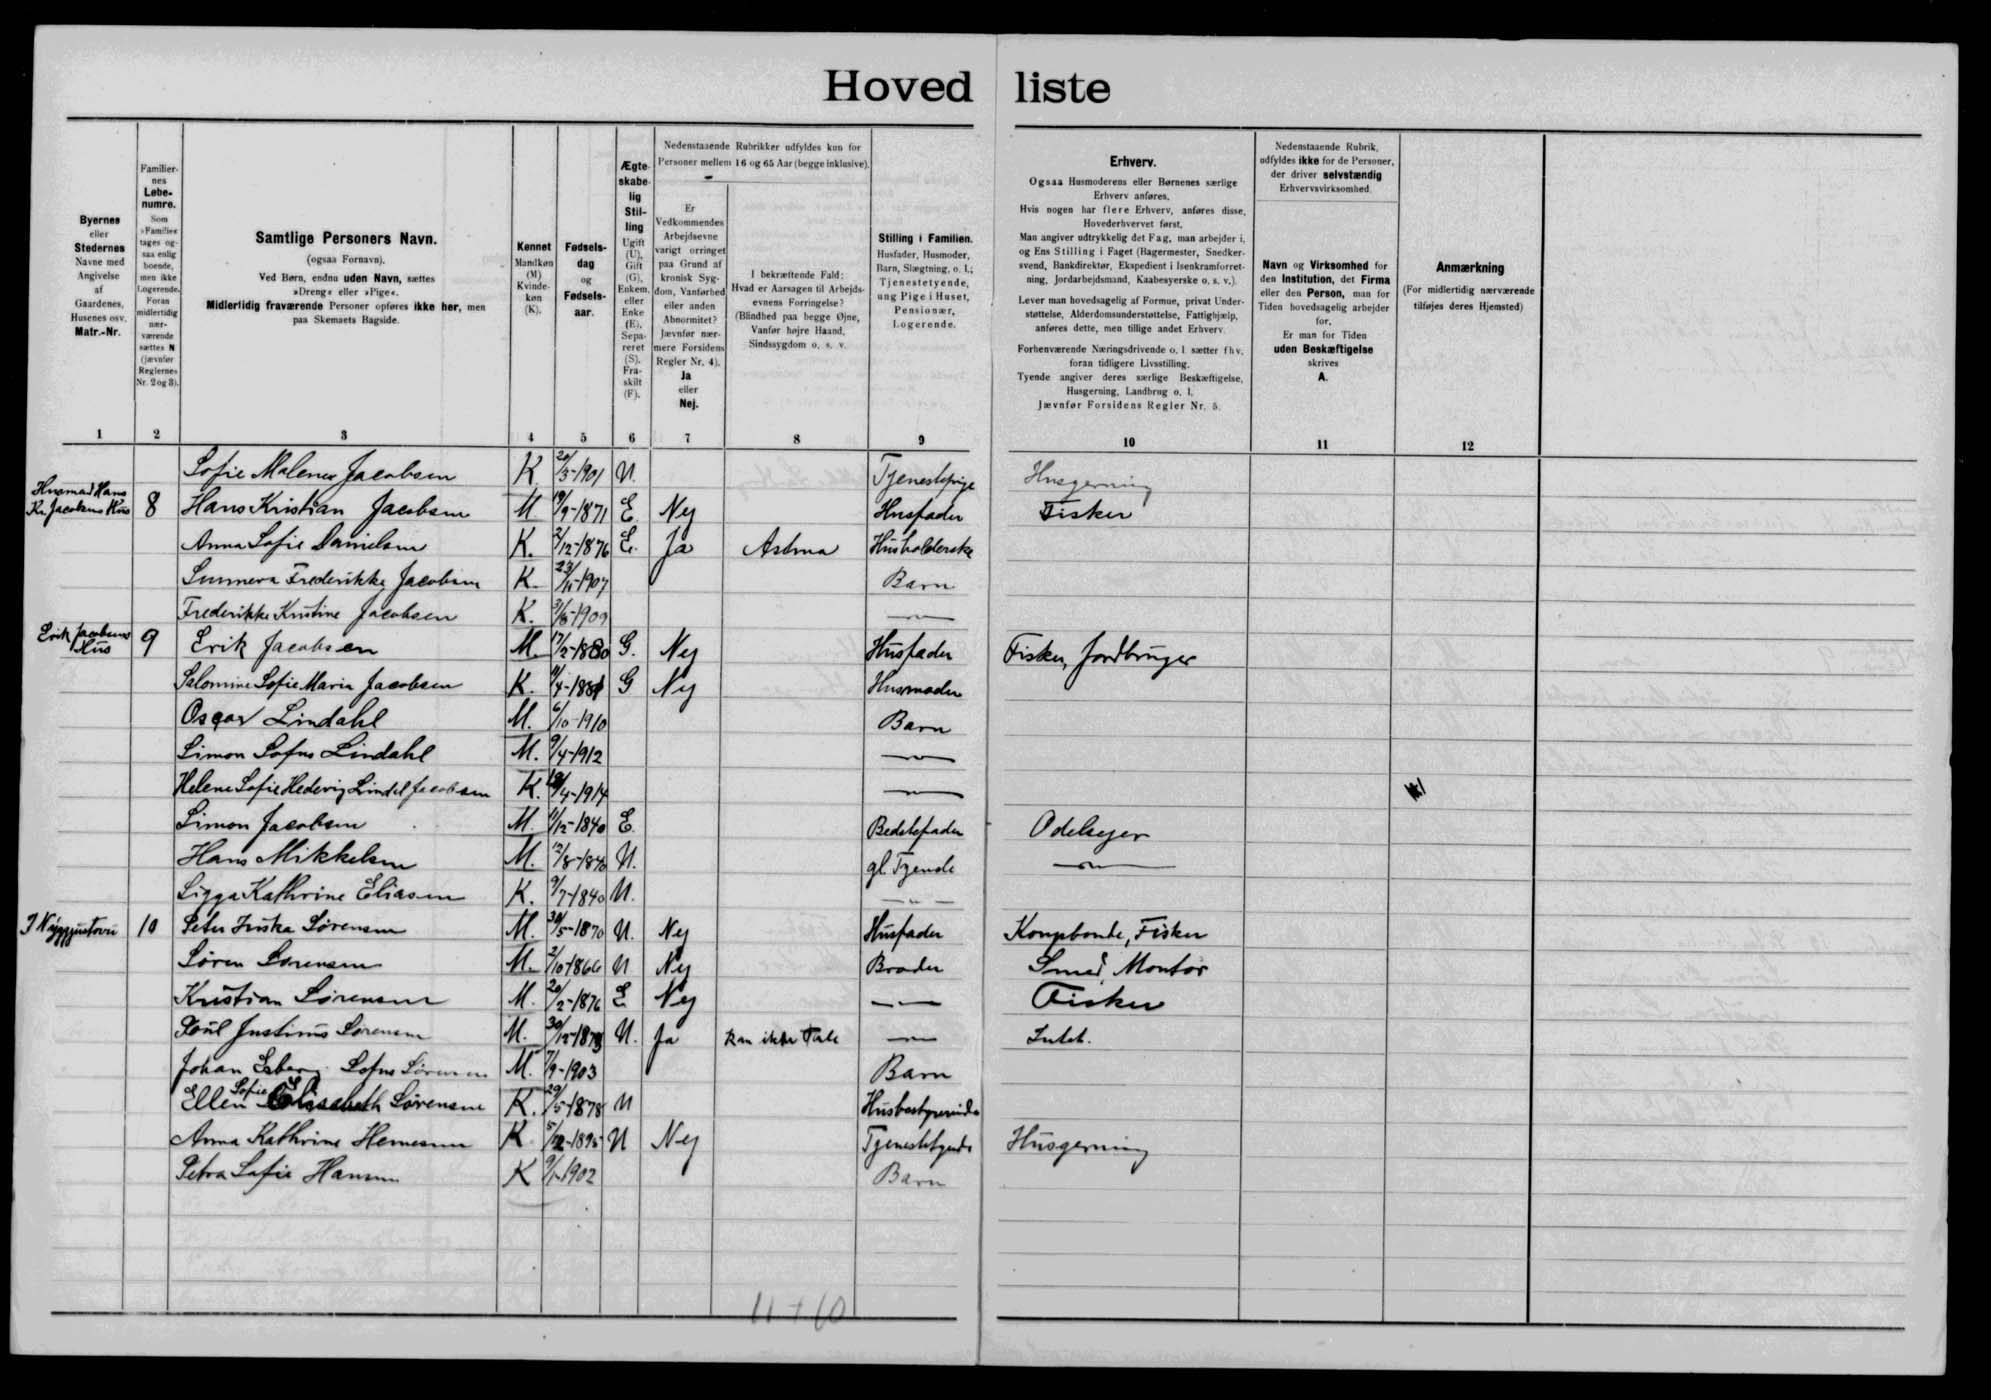 Hovedliste
Byernes eller Stedernes Navne med Angivelse af Gaardenes, Husenes osv. Matr.-Nr.
Familiernes Løbenumre. Som »Familie« tages ogsaa enlig boende, men ikke Logerende. Foran midlertidig nærværende sættes N (jævnfør Reglernes Nr. 2 og 3).
Samtlige Personers Navn. (ogsaa Fornavn). Ved Børn, endnu uden Navn, sættes »Dreng« eller »Pige«. Midlertidig fraværende Personer opføres ikke her, men paa Skemaets Bagside.
Kønnet Mandkøn (M) Kvindekøn (K).
Fødselsdag og Fødselsaar.
Ægteskabelig Stilling Ugift (U), Gift (G), Enkem. eller Enke (E), Separeret (S). Fraskilt (F).
Nedenstaaende Rubrikker udfyldes kun for Personer mellem 16 og 65 Aar (begge inklusive).
Er Vedkommendes Arbejdsevne varigt forringet paa Grund af kronisk Sygdom, Vanførhed eller anden Abnormitet? Jævnfør nærmere Forsidens Regler Nr. 4). Ja eller Nej.
I bekræftende Fald: Hvad er Aarsagen til Arbejdsevnens Forringelse? (Blindhed paa begge Øjne, Vanfør højre Haand, Sindssygdom o. s. v.
Stilling i Familien. Husfader, Husmoder, Barn, Slægtning, o. l.; Tjenestetyende, ung Pige i Huset, Pensionær, Logerende.
Erhverv.
Ogsaa Husmoderens eller Børnenes særlige Erhverv anføres.
Hvis nogen har flere Erhverv, anføres disse, Hovederhvervet først.
Man angiver udtrykkelig det Fag, man arbejder i, og Ens Stilling i Faget (Bagermester, Snedkersvend, Bankdirektør, Ekspedient i Isenkramforretning, Jordarbejdsmand, Kaabesyerske o. s. v.).
Lever man hovedsagelig af Formue, privat Understøttelse, Alderdomsunderstøttelse, Fattighjælp, anføres dette, men tillige andet Erhverv.
Forhenværende Næringsdrivende o. l. sætter fhv. foran tidligere Livsstilling.
Tyende angiver deres særlige Beskæftigelse, Husgerning, Landbrug o. l.
Jævnfør Forsidens Regler Nr. 5.
Nedenstaaende Rubrik, udfyldes ikke for de Personer, der driver selvstændig Erhvervsvirksomhed.
Navn og Virksomhed for den Institution, det Firma eller den Person, man for Tiden hovedsagelig arbejder for.
Er man for Tiden uden Beskæftigelse skrives A.
Anmærkning (For midlertidig nærværende tilføjes deres Hjemsted)
1 2 3 4 5 6 7 8 9 10 11 12
Sofie Malene Jacobsen K 20/3-1901 U. Tjenestepige Husgerning
Husmand Hans Kr. Jacobsens Hus 8 Hans Kristian Jacobsen M 19/9-1871 E. Nej Husfader Fisker
Anna Sofie Danielsen K. 2/12-1876 E. Ja Astma Husholderske
Sunneva Frederikke Jacobsen K. 23/11-1907 Barn
Frederikke Kristine Jacobsen K. -1909 —
Erik Jacobsens Hus 9 Erik Jacobsen M. 17/2-1880 G. Nej Husfader Fisker, Jordbruger
Salomine Sofie Maria Jacobsen K. 11/4-1881 G Nej Husmoder
Oscar Lindahl M. 6/10-1910 Barn
Simon Sofus Lindahl M. 9/4-1912 —
Helene Sofie Hedevig Lindal Jacobsen K. 18/4-1914 —
Simon Jacobsen M. 11/12-1840 E. Bedstefader Odelsejer
Hans Mikkelsen M. 12/8-1840 U. gl. Tyende —
Sigga Kathrine Eliasen K. 9/7-1840 U. - " -
I Nýggjustovu 10 Peter Juska Sørensen M. 30/5-1870 U. Nej Husfader Kongsbonde, Fisker
Søren Sørensen M. 2/10-1866 U Nej Broder Smed, Montør
Kristian Sørensen M. 20/2-1876 E Nej — Fisker
Poul Justinus Sørensen M. 30/12-1873 U. Ja kan ikke Tale — Intet.
Johan Esberg Sofus Sørensen M. 7/9-1903 Barn
Ellen Sofie Elisabeth Sørensen K. 29/5-1878 U Husbestyrerinde
Anna Kathrine Hemesen K 5/12-1895 U Nej Tjenestetyende Husgerning
Petra Sofie Hansen K 9/1-1902 Barn
11 + 10